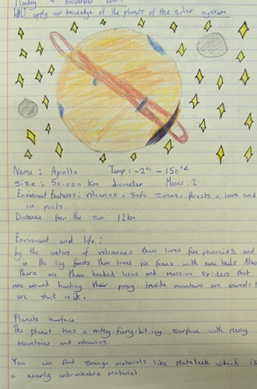 Monday November
WALT apply our knowledge of the planets of the solar system
Name: Apollo Temp: -2°c - 150°c
Size: 50.000 km diameter Moons: 2
features: volcanoes, Safe Zones, forests, and
ice pools.
Distance from the sun: 12km
and life:
by the craters of volcanoes there lives fire and
in the icy forests there lives ice foxes with some tails. Also
There are Three headed lions and Massive Spiders that
roam around hunting their prey. Inside mountains are animals
are stuck in
Planets surface
The planet has a icy surface with many
mountains and volcanoes
You can find strange materials like which is
a nearly unbreakable material.